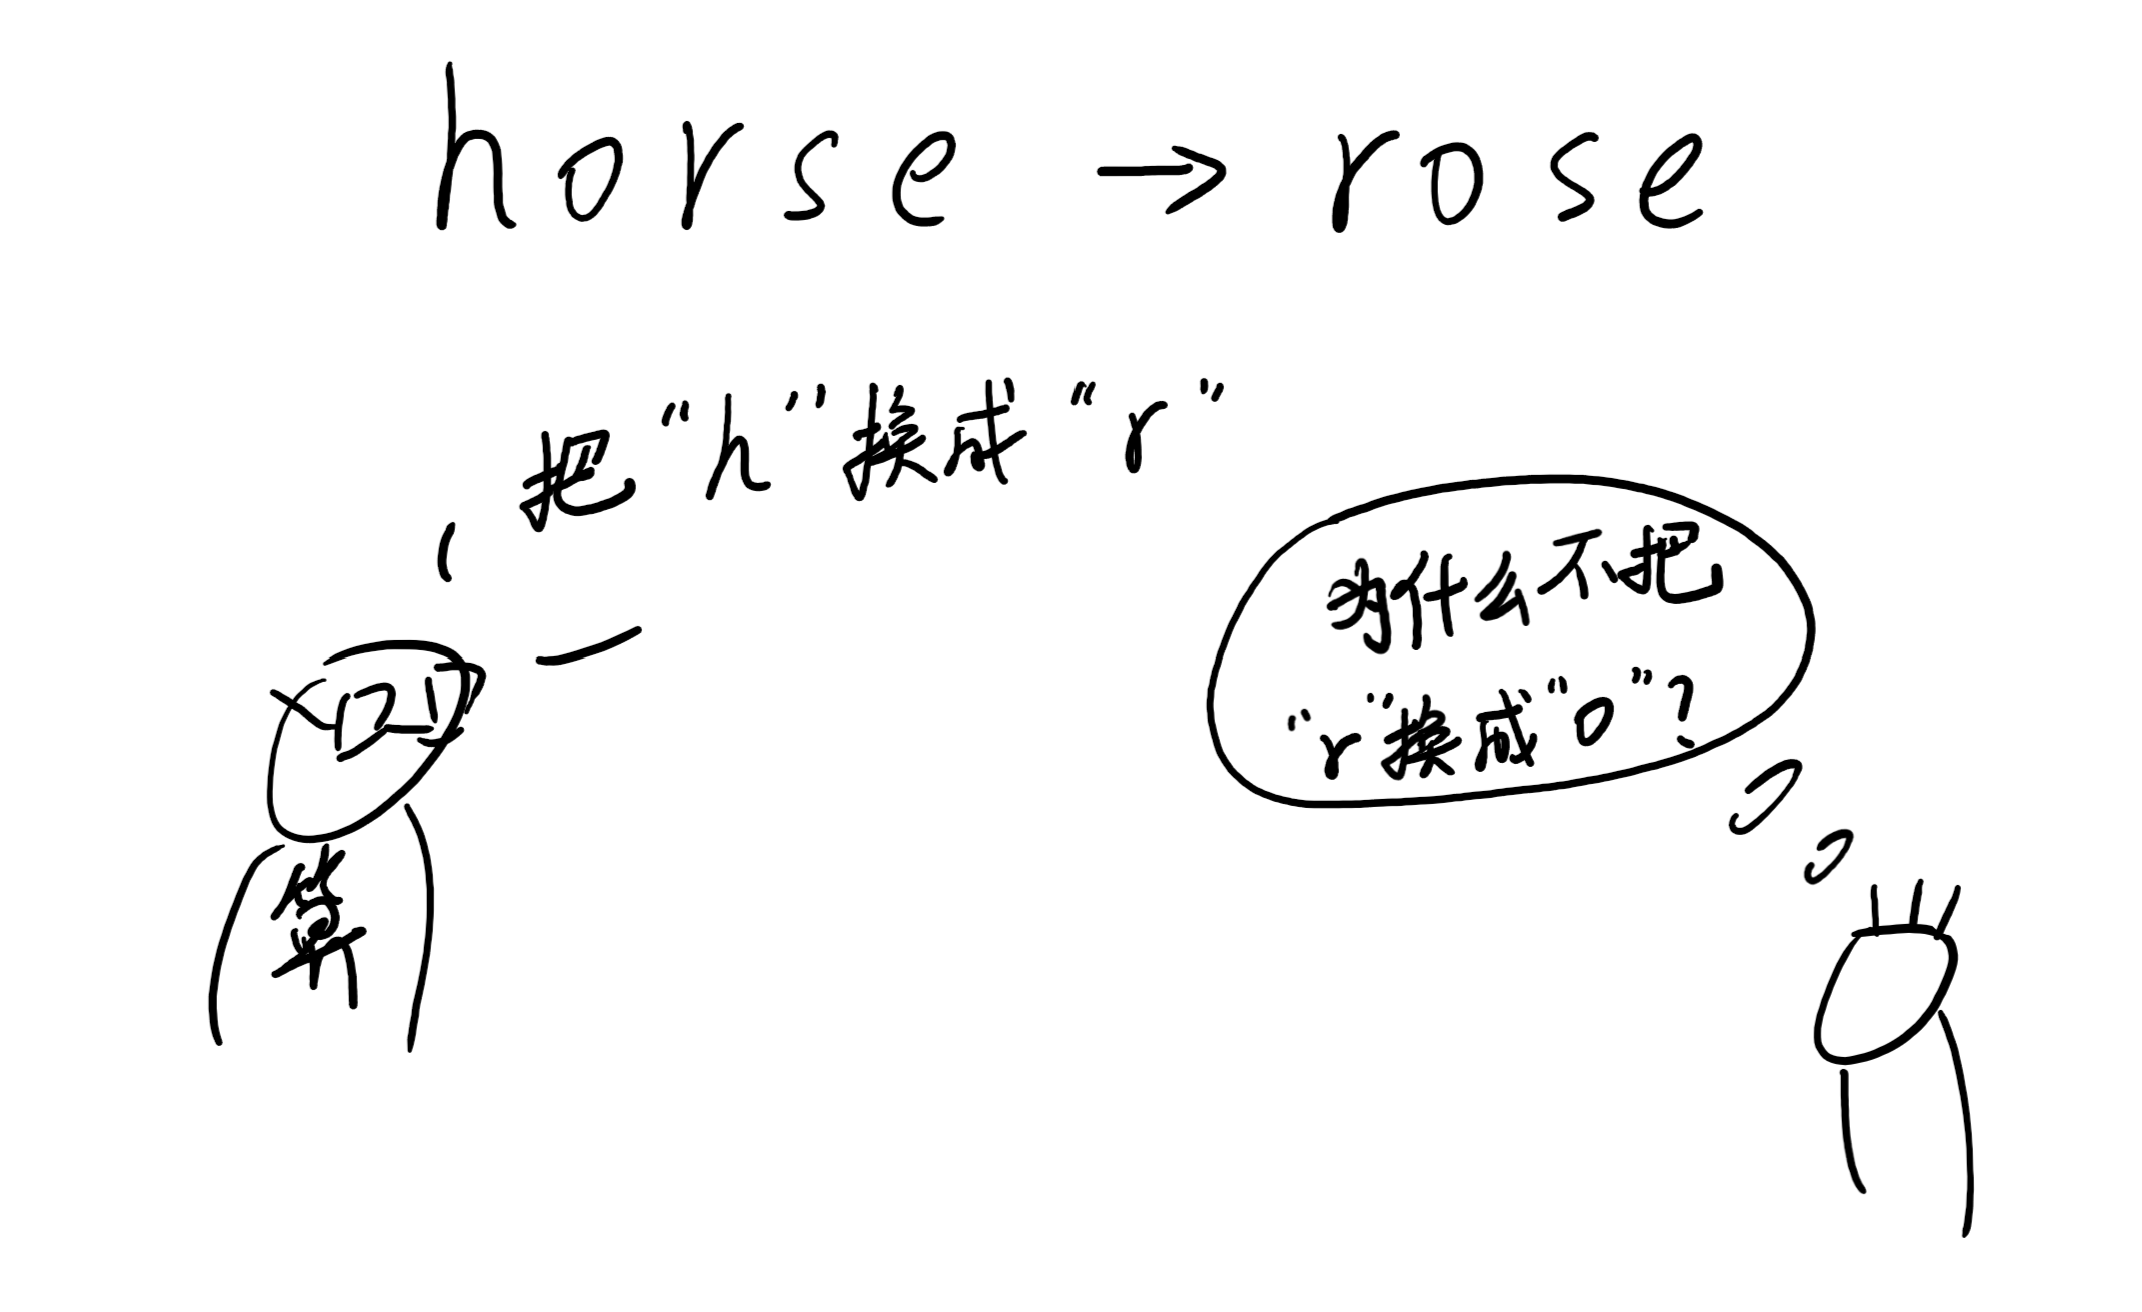 horse → rose
把“h”换成“r”
为什么不把
“r”换成“o”?
算